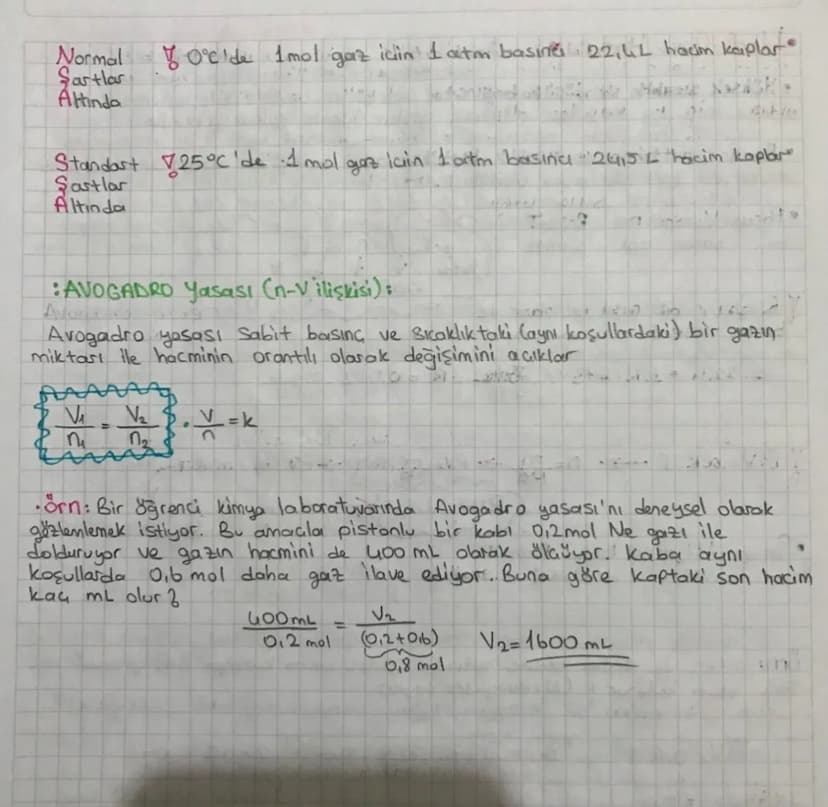 Normal ! 0°C'de 1mol gaz için 1 atm basıncı 22,4L hacim kaplar
Şartlar
Altında
Standart ! 25°C'de 1 mol gaz için 1 atm basıncı 24,5 L hacim kaplar
Şartlar
Altında
:AVOGADRO Yasası (n-V ilişkisi):
Avogadro yasası sabit basınç ve sıcaklıktaki (aynı koşullardaki) bir gazın
miktarı ile hacminin orantılı olarak değişimini açıklar
V₁/n₁ = V₂/n₂ . V/n = k
.Örn: Bir öğrenci kimya laboratuvarında Avogadro yasası'nı deneysel olarak
gözlemlemek istiyor. Bu amaçla pistonlu bir kabı 0,2mol Ne gazı ile
dolduruyor ve gazın hacmini de 400 mL olarak ölçüyor. Kaba aynı
koşullarda 0,6 mol daha gaz ilave ediyor. Buna göre kaptaki son hacim
kaç mL olur?
400mL/0,2 mol = V₂/(0,2+0,6) V₂=1600 mL
0,8 mol